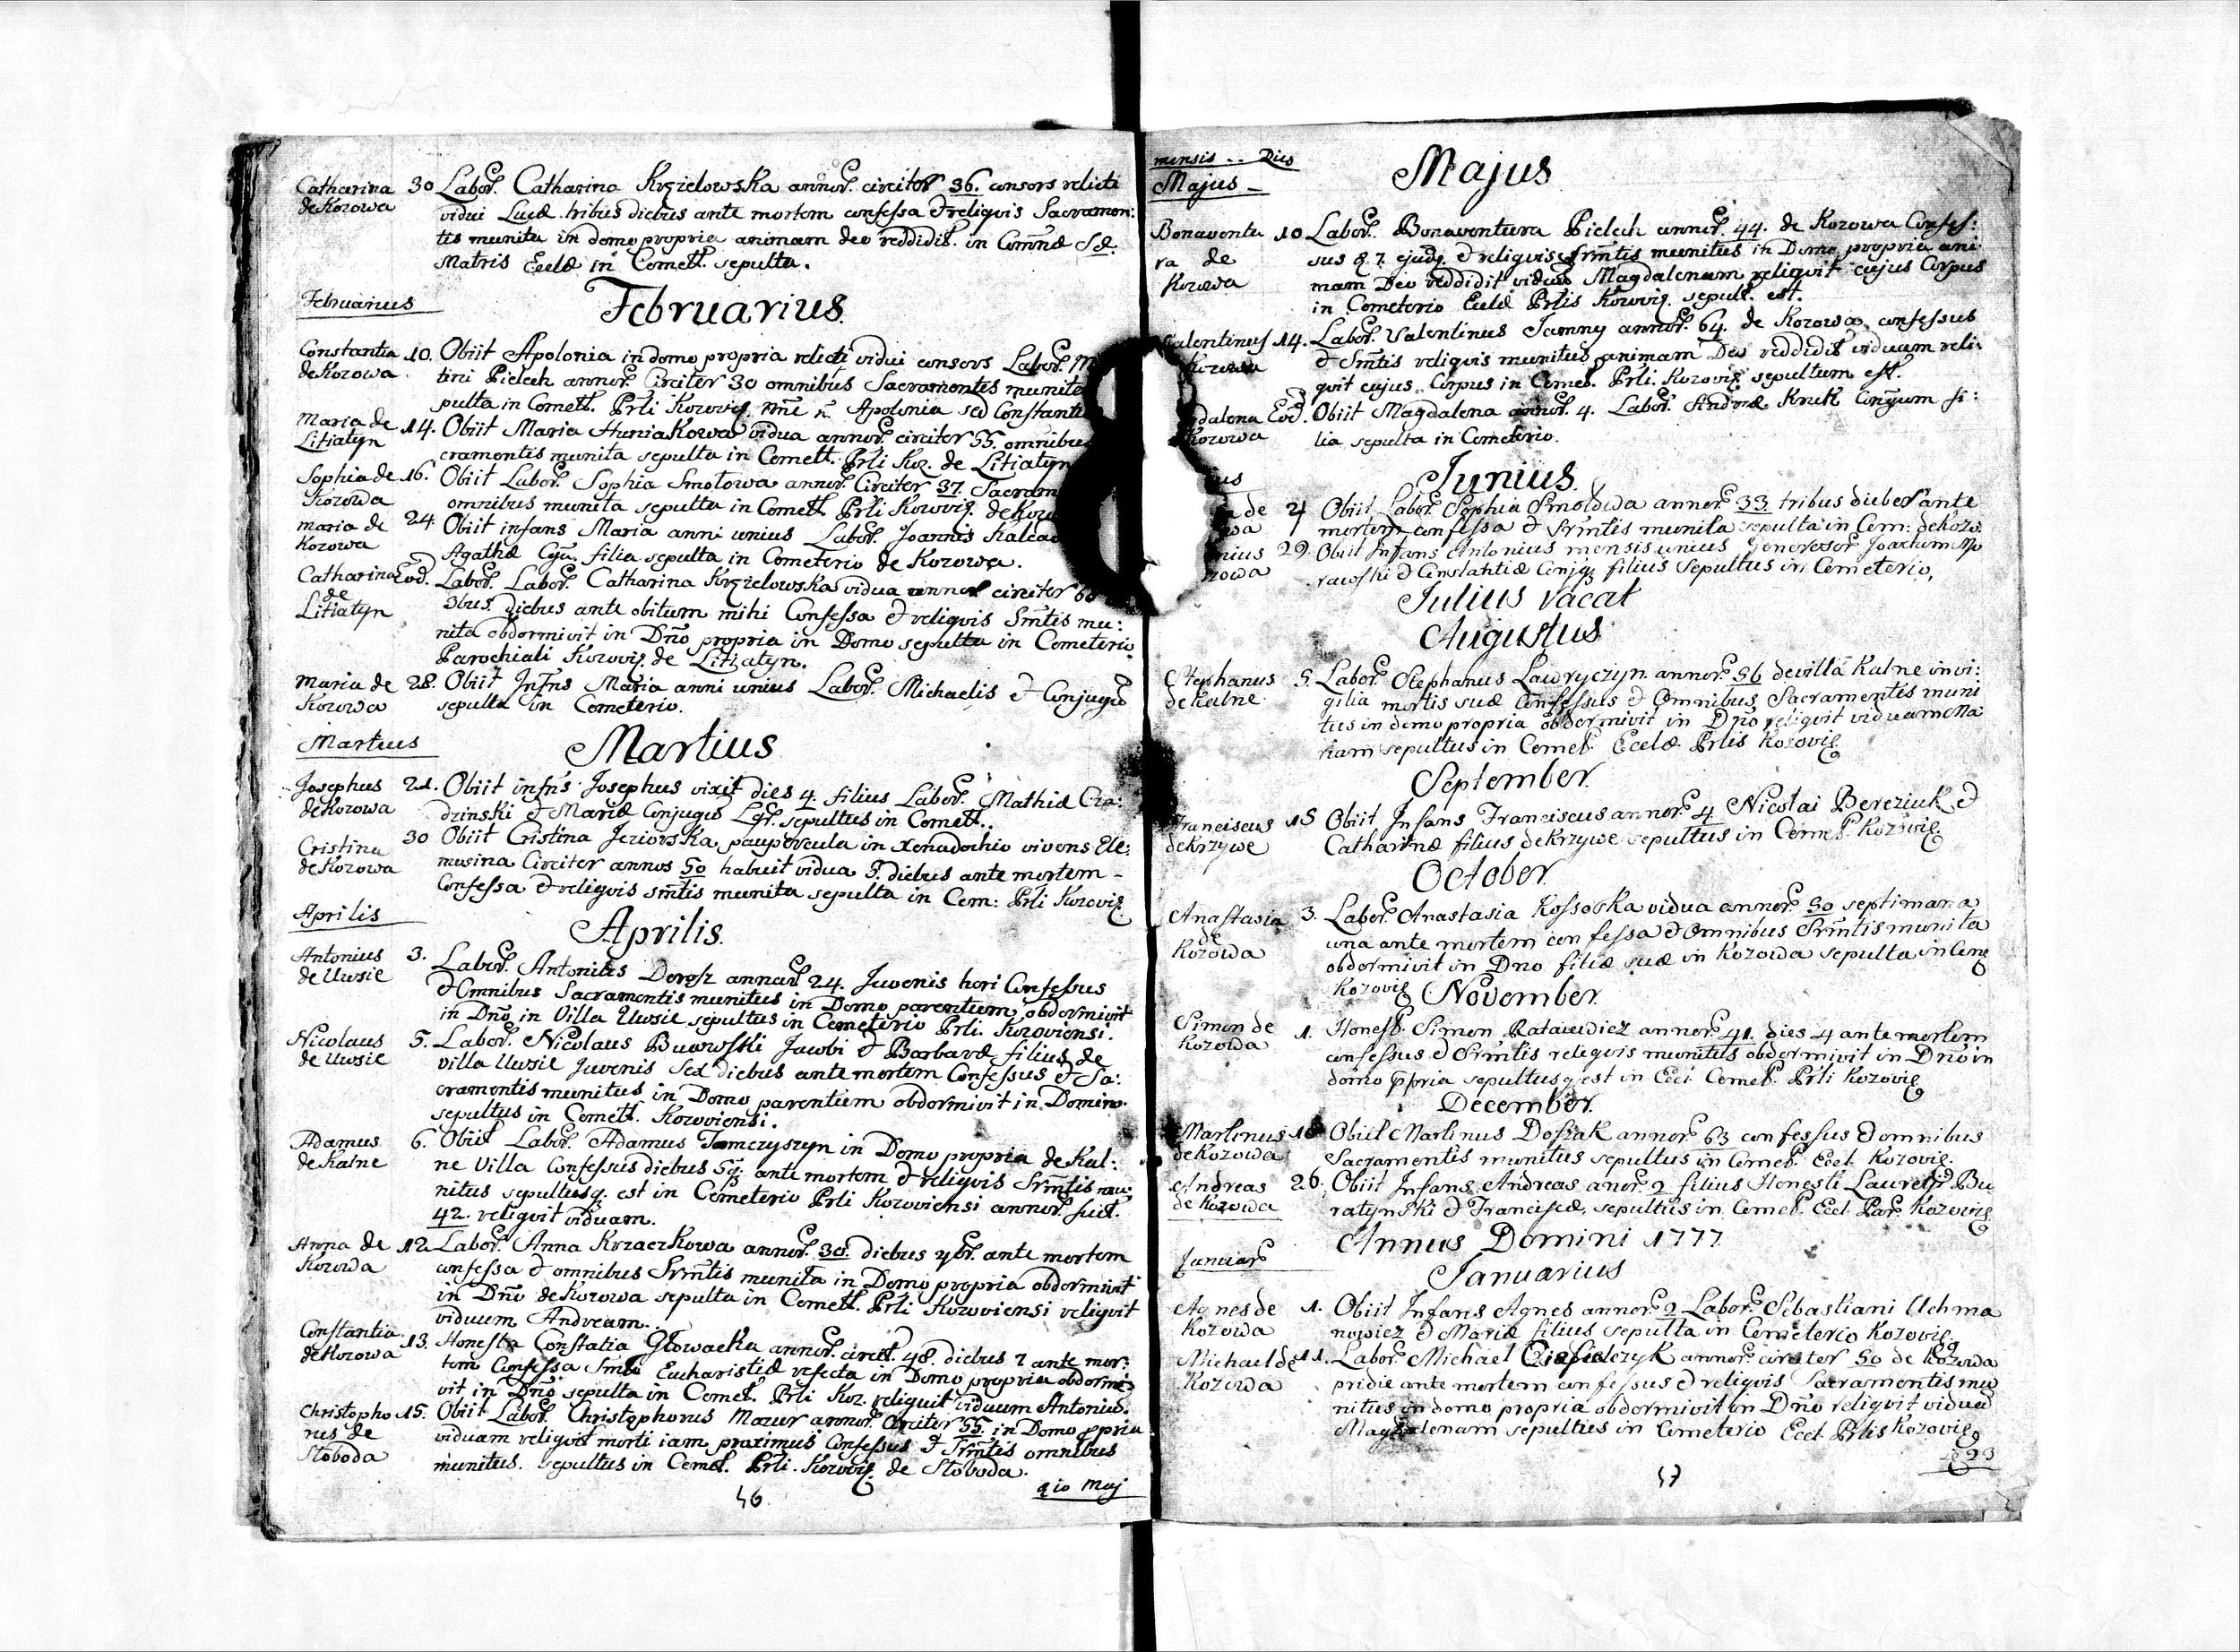 Catharina 30 Labor. Catharina Kręzielowska annor. circiter 36. consors relicti
de Kozowa vidui Lucæ tribus diebus ante mortem confessa & reliqvis Sacramen:
tis munita in domo propria animam deo reddidit. in Comñe Sæ.
Matris Ecclæ in Comett. sepulta.
Februarius
Februarius.
Constantia 10. Obiit Apolonia in domo propria relicti vidui consors Labor.
de Kozowa tini Pielech annor. Circiter 30 omnibus Sacramentis
pulta in Comett. Prli Kozovig. Apolonia sed
Maria de 14. Obiit Maria HuniaKowa vidua annor. circiter 55. omnibus
Litiatyn cramentis munita sepulta in Comett. Prli Koz. de Litiatyn
Sophia de 16. Obiit Labor. Sophia Smolowa annor. Circiter 37
Kozowa omnibus munita sepulta in Comett. Prli Kozovig.
Maria de 24. Obiit infans Maria anni unius Labor. Joannis
Kozowa Agathæ filia sepulta in Cometerio de Kozowa.
Catharina Eod. Labor. Labor. Catharina Kręzielowska vidua annor circiter
de 3bus. diebus ante obitum mihi Confessa & reliqvis Smtis mu:
Litiatyn nita obdormivit in Dño propria in Domo sepulta in Cometerio
Parochiali Kozovig. de Litiatyn.
Maria de 28. Obiit Infns Maria anni unius Labor. Michaelis & Conjugũ
Kozowa sepulta in Cometerio.
Martius
Martius
Josephus 21. Obiit infns Josephus vixit dies 4. filius Labor. Mathiæ
de Kozowa dzinski & Mariæ Conjugũ sepultus in Comett.
Cristina 30 Obiit Cristina Jeziorska paupercula in xenodochio vivens Ele:
de Kozowa mosina Circiter annos 50 habuit vidua 5. diebus ante mortem
Confessa & reliqvis smtis munita sepulta in Cem: Prli Kozovig.
Aprilis
Aprilis.
Antonius 3. Labor. Antonius Dorosz annor. 24. Juvenis heri Confessus
de Uwsie & Omnibus Sacramentis munitus in Domo parentum obdormivit
in Dño in Villa Uwsie sepultus in Cemeterio Prli. Kozoviensi.
Nicolaus 5. Labor. Nicolaus Jacobi & Barbaræ filius de
de Uwsie villa Uwsie Juvenis Sex diebus ante mortem Confessus & Sa:
cramentis munitus in Domo parentum obdormivit in Domino.
sepultus in Comett. Kozoviensi.
Adamus 6. Obiit Labor. Adamus Tomczyszyn in Domo propria de Kal:
de Kalne ne Villa Confessus diebus ante mortem & reliqvis Srmtis mu:
nitus sepultusq. est in Cemeterio Prli Kozoviensi annor. fuit.
42. reliqvit viduam.
Anna de 12. Labor. Anna KrzaczKowa annor. 30. diebus ante mortem
Kozowa confessa & omnibus Srmtis munita in Domo propria obdormivit
in Dño de Kozowa sepulta in Comett. Prli Kozoviensi reliqvit
viduum Andream.
Constantia 13. Honesta Constatia Głowacka annor. circit. 48. diebus 2 ante mor:
de Kozowa tem Confessa Smte Eucharistiæ refecta in Domo propria obdormi
vit in Dño sepulta in Comet. Prli Koz. reliquit viduum Antoniũ.
Christopho 15. Obiit Labor. Christophorus Mazur annor. Circiter 55. in Domo ppria
rus de viduam reliqvit morti iam proximus Confessus & Srmtis omnibus
Słoboda munitus. sepultus in Comet. Prli. Kozovig. de Słoboda.
46. Maj
mensis .. Dies
Majus
Majus
Bonaventu 10 Labor. Bonaventura Pielech annor. 44. de Kozowa Confes:
ra de sus & reliqvis Srmtis munitus in Domo propria ani
Kozowa mam Deo reddidit viduam Magdalenam reliqvit cujus Corpus
in Cometerio Ecclæ Prlis Kozovig. sepult. est.
Valentinus 14. Labor. Valentinus Jamny annor. 64. de Kozowa confessus
Kozowa & Smtis reliqvis munitus animam Deo reddidit viduam reli:
qvit cujus Corpus in Comet. Prli. Kozovig. sepultum est.
dalena Eod. Obiit Magdalena annor. 4. Labor. Andreæ Kruk Conjum fi:
Kozowa lia sepulta in Cometerio.
us
Junius.
de Obiit Labor. Sophia Smolowa annor. 33 tribus diebus ante
wa mortem confessa & Srmtis munita sepulta in Cem: de Kozo.
nius 29. Obiit Infans Antonius mensis unius Generosor. Joachim
zowa rawski & Constantiæ Conjg. filius Sepultus in Cemeterio.
Julius vacat
Augustus
Stephanus 5. Labor. Stephanus Lawryczyn annor. 56 de villa Kalne in vi:
de Kalne gilia mortis suæ Confessus & Omnibus Sacramentis muni
tus in domo propria obdormivit in Dño reliqvit viduam Ma
riam sepultus in Comet. Ecclæ Prlis Kozovig.
September.
Franciscus 15 Obiit Infans Franciscus annor. 4 Nicolai Bereziuk &
de Krzywe Catharinæ filius de Krzywe sepultus in Comet. Kozovig.
October.
Anastasia 3. Labor. Anastasia Kossowska vidua annor. 50 septimana
de una ante mortem confessa & Omnibus Srmtis munita
Kozowa obdormivit in Dno filiæ suæ in Kozowa sepulta in Cem
Kozovig
November.
Simon de 1. Honest. Simon Rataiewicz annor. 41. dies 4 ante mortem
Kozowa confessus & Srmtis reliqvis munitus obdormivit in Dño in
domo ppria sepultusq est in Eccl. Comet. Prli Kozovig
December.
Martinus Obiit Martinus Doszak annor. 63 confessus & omnibus
de Kozowa Sacramentis munitus sepultus in Comet. Eccl. Kozovig.
Andreas 26. Obiit Infans Andreas anor. 2 filius Honesti Laurety Bu
de Kozowa ratynski & Franciscæ, sepultus in Comet. Eccl. Par. Kozovig
Annus Domini 1777
Januar.
Januarius
Agnes de 1. Obiit Infans Agnes annor. 2 Labor. Sebastiani Uchma
Kozowa nowicz & Mariæ filius sepulta in Cemeterio Kozovig.
Michael de 11. Labor. Michael annor. circiter 50 de Kozowa
Kozowa pridie ante mortem confessus & reliqvis Sacramentis mu
nitus in domo propria obdormivit in Dño reliqvit viduã
Magdalenam sepultus in Cometerio Eccl. Prlis Kozovig
47